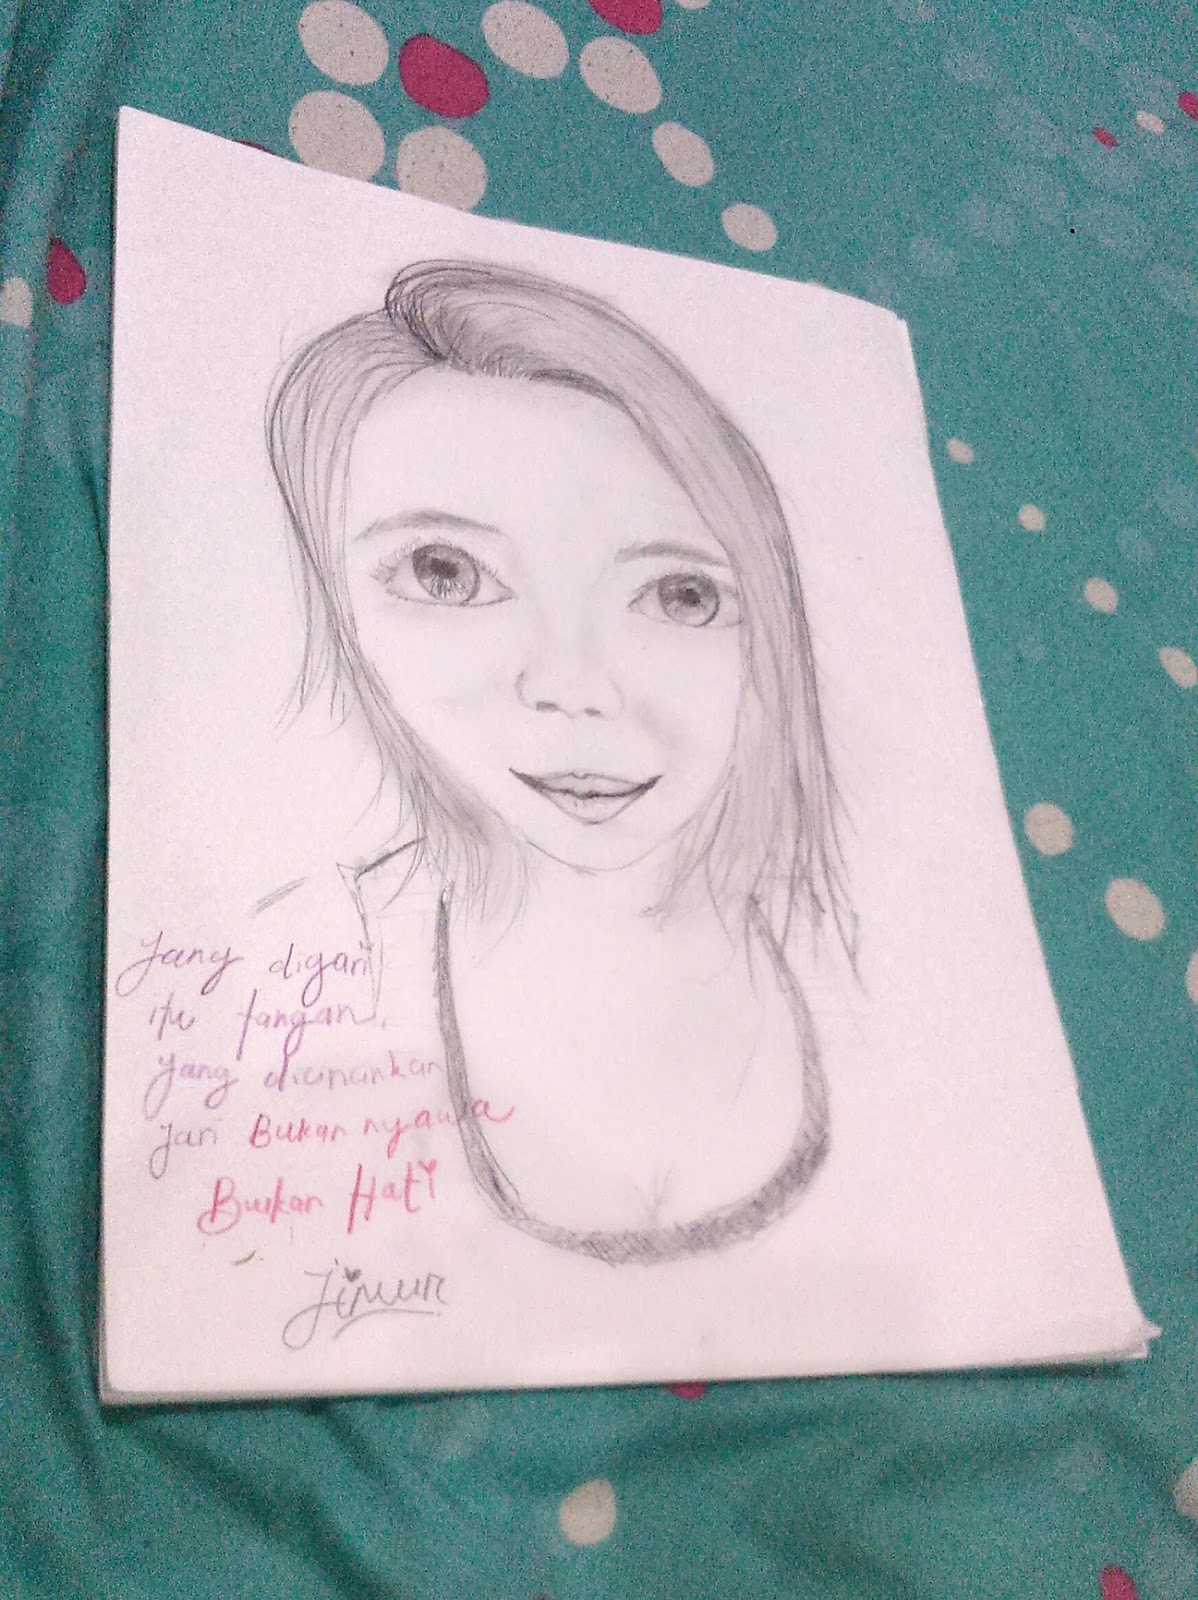 Yang digari
itu tangan,
yang dicinarkan
jari Bukan nyawa
Bukan Hati